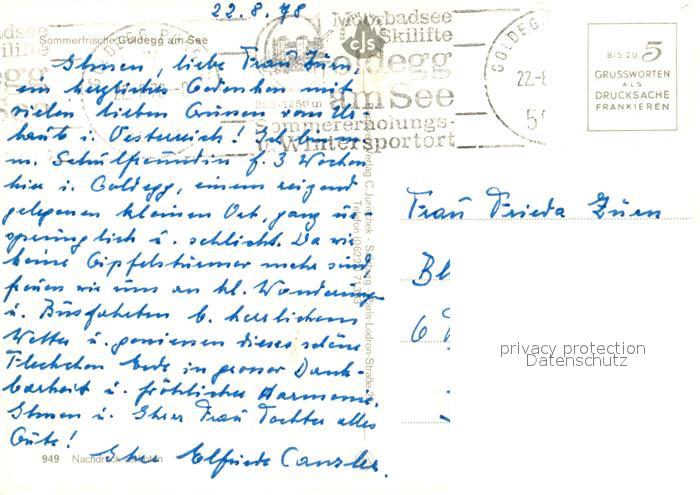 22.8.78
Sommerfrische Goldegg am See
Moorbadsee
Skilifte
Goldegg
am See
Sommererholungs-
u. Wintersportort
GOLDEGG
22.-8
BIS ZU 5
GRUSSWORTEN
ALS
DRUCKSACHE
FRANKIEREN
Ihnen, liebe Frau Zürn,
ein herzliches Gedenken mit
vielen lieben Grüssen vom Ur-
laub i. Oesterreich! Ich bin
m. Schulfreundin f. 3 Wochen
hier i. Goldegg, einem reizend
gelegenen kleinen Ort, ganz ur-
sprünglich u. schlicht. Da wir
keine Gipfelstürmer mehr sind
freuen wir uns an kl. Wanderungen
u. Busfahrten b. herrlichem
Wetter u. geniessen dieses schöne
Fleckchen Erde in grosser Dank-
barkeit u. fröhlicher Harmonie.
Ihnen u. Ihrer Frau Tochter alles
Gute!
Ihre Elfriede Canzler.
Frau Frieda Zürn
Bl
6
privacy protection
Datenschutz
949 Nachdruck verboten